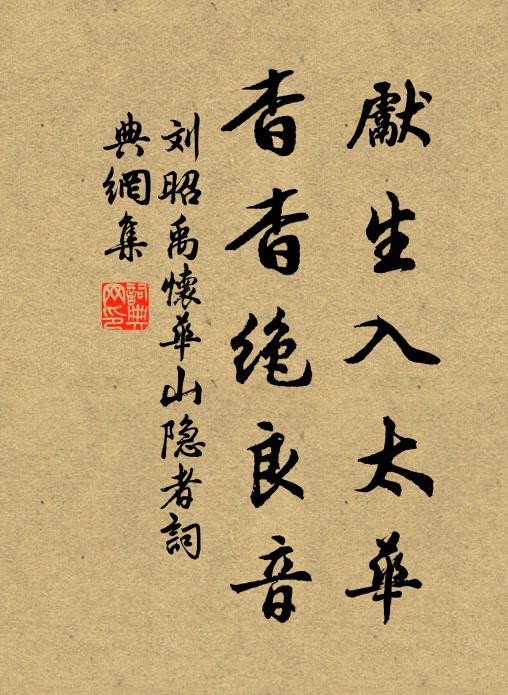 獻生入太華
杳杳绝良音
刘昭禹懷華山隐者詞
典網集
詞典网印